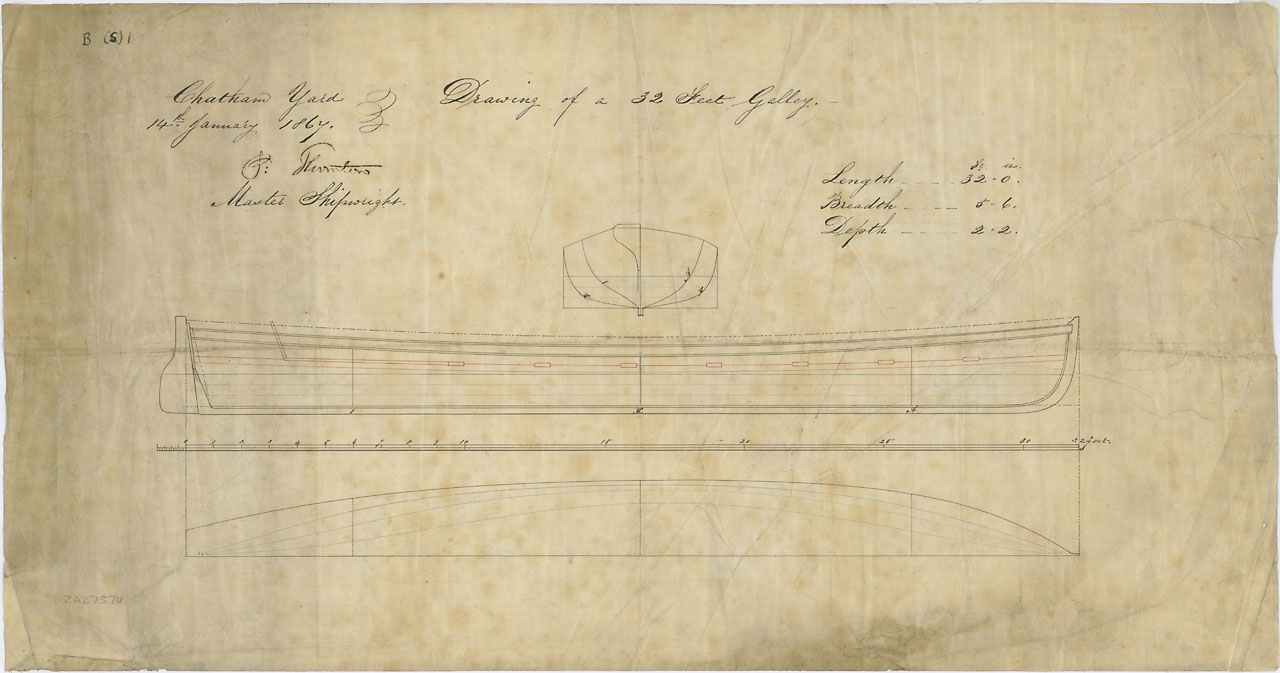 B (5) 1
Chatham Yard
14th January 1867.
Drawing of a 32 Feet Galley.
P: Thornton
Master Shipwright.
ft in.
Length 32 - 0.
Breadth 5 - 6.
Depth 2 - 2.
0 1 2 3 4 5 6 7 8 9 10 15 20 25 30 32 feet.